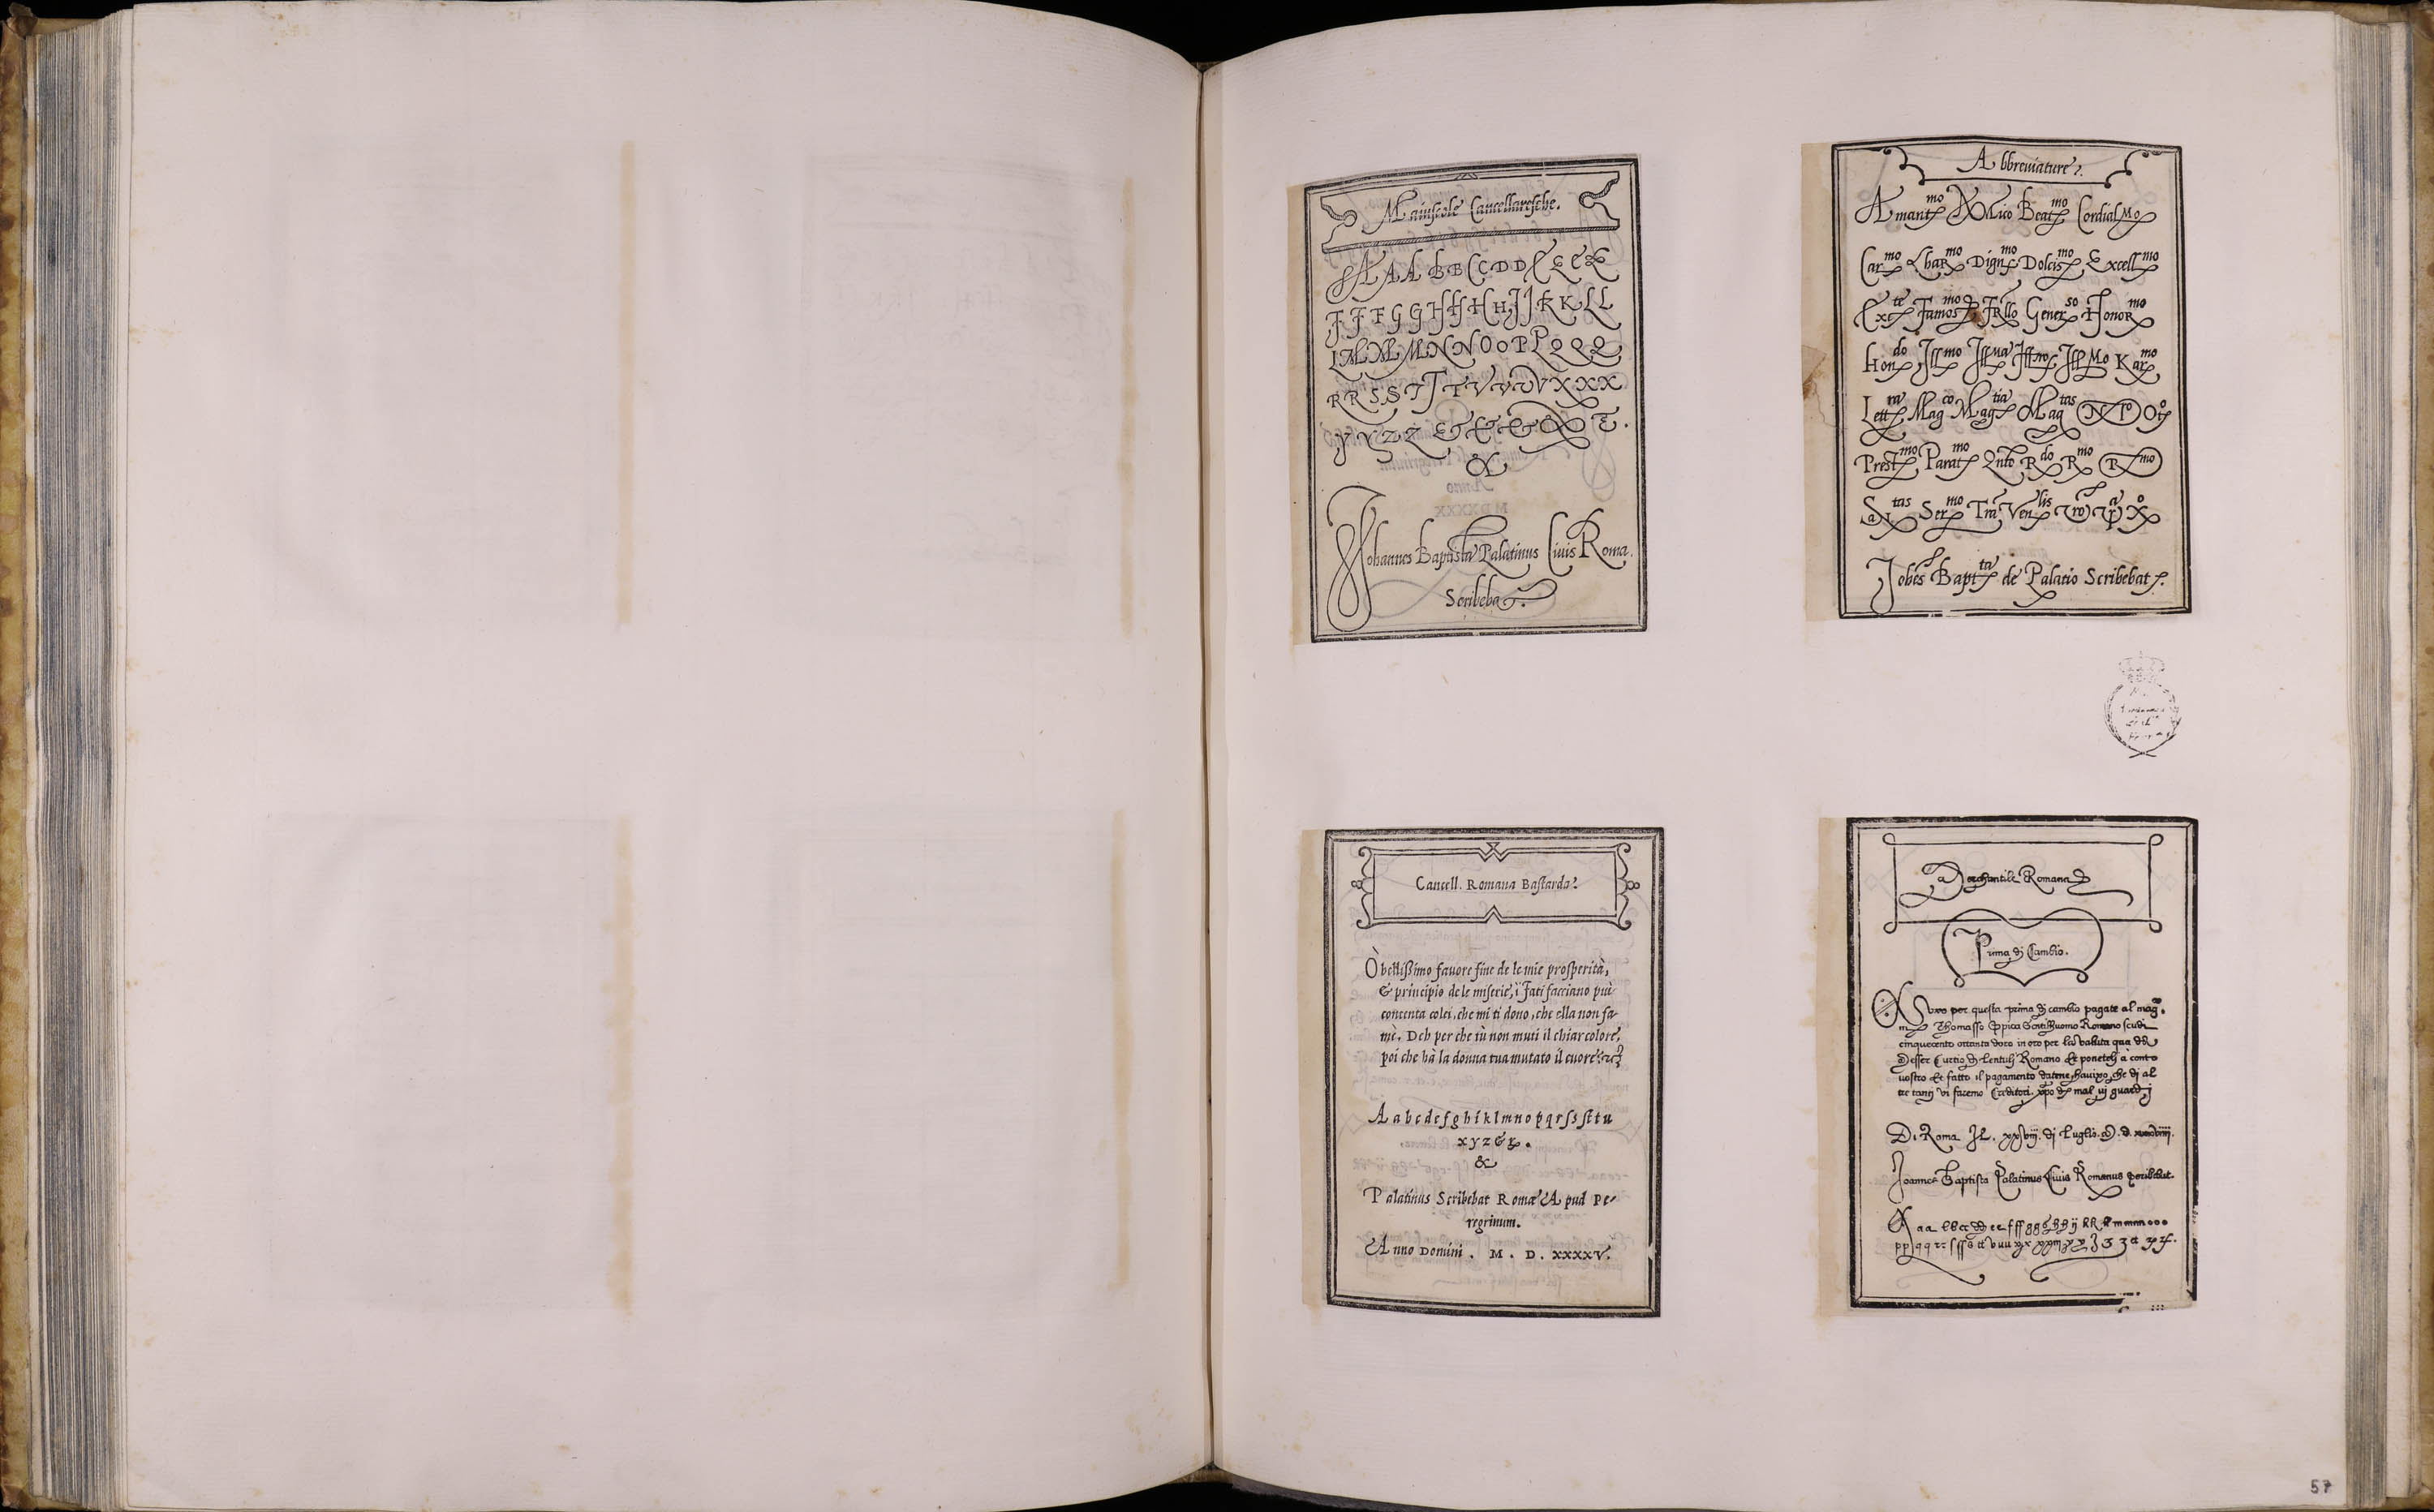 Maiuscole Cancellaresche.
A A A B B C C D D E E E E
F F F G G H H H H J J K K L L
L M M M N N O O P P Q Q Q
R R S S T T T V V V V X X X
Y Y Z Z & & & &
&
Johannes Baptista Palatinus Ciuis Roma.
Scribeba
Abbreviature.
Amant mo Amico Beat mo Cordial Mo
Car mo Char mo Dign mo Dolcis mo Excell mo
Exc te Famos mo Frllo Gener so Honor mo
Hon do Ill mo Kar mo
Lett ra Mag co Mag tia Mag tas N P
Prest mo Parat mo R do R mo R mo
S tas Ser mo Ven lis
Johes Bapt ta de Palatio Scribebat.
Cancell. Romana Bastarda
Ò bellißimo fauore fine de le mie prosperità,
& principio de le miserie, i Fati facciano più
contenta colei, che mi ti dono, che ella non fa
mè. Deh per che tù non muti il chiar colore,
poi che hà la donna tua mutato il cuore
A a b c d e f g h i k l m n o p q r ſ s ſt t u
x y z & .
&
Palatinus Scribebat Romæ Apud Pe-
regrinum.
Anno Domini. M. D. XXXXV.
Merchantile Romana
Prima di Cambio.
per questa prima di cambio pagate al mag.
Thomasso Gentilhuomo Romano scudi
cinquecento ottanta doro in oro per la valuta qua da
Messer Curtio Romano et poneteli à conto
uostro et fatto il pagamento datene che di al
tre tanti vi faremo Creditori. mal vi guardi
Di Roma di Luglio.
Joannes Baptista Palatinus Ciuis Romanus Scribebat.
57